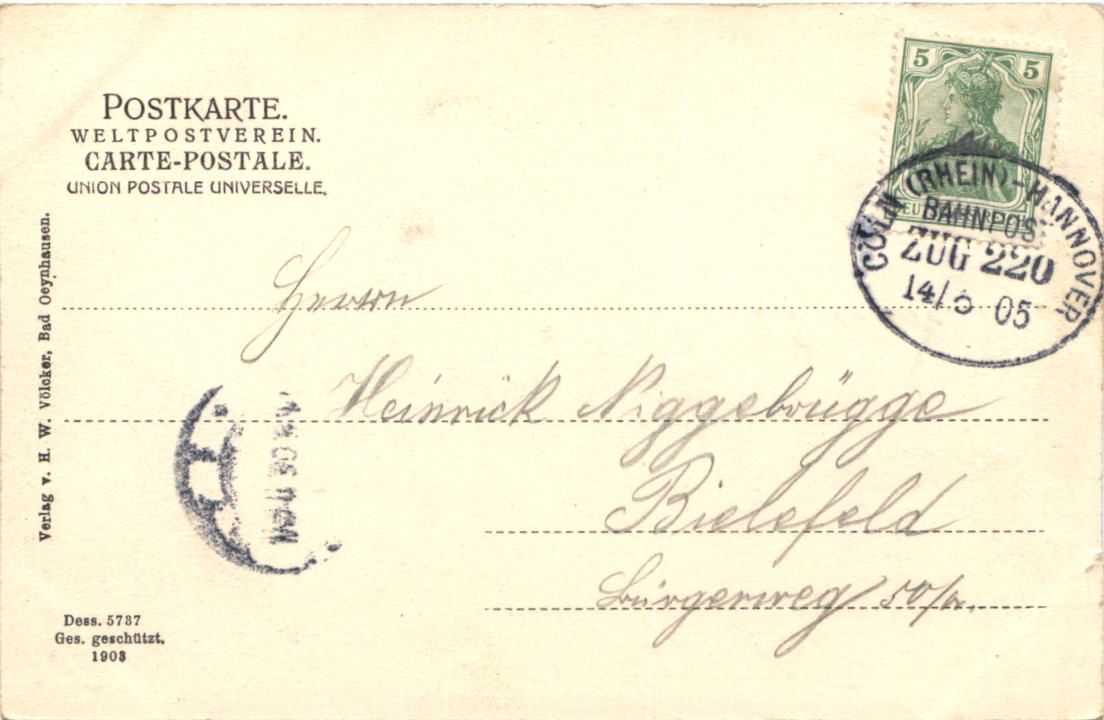 POSTKARTE.
WELTPOSTVEREIN.
CARTE-POSTALE.
UNION POSTALE UNIVERSELLE.
5 5
CÖLN (RHEIN)-HANNOVER
BAHNPOST
ZUG 220
14/5 05
Herrn
Heinrich Niggebrügge
Bielefeld
Bürgerweg 50/a.
Verlag v. H. W. Völcker, Bad Oeynhausen.
Dess. 5737
Ges. geschützt.
1903